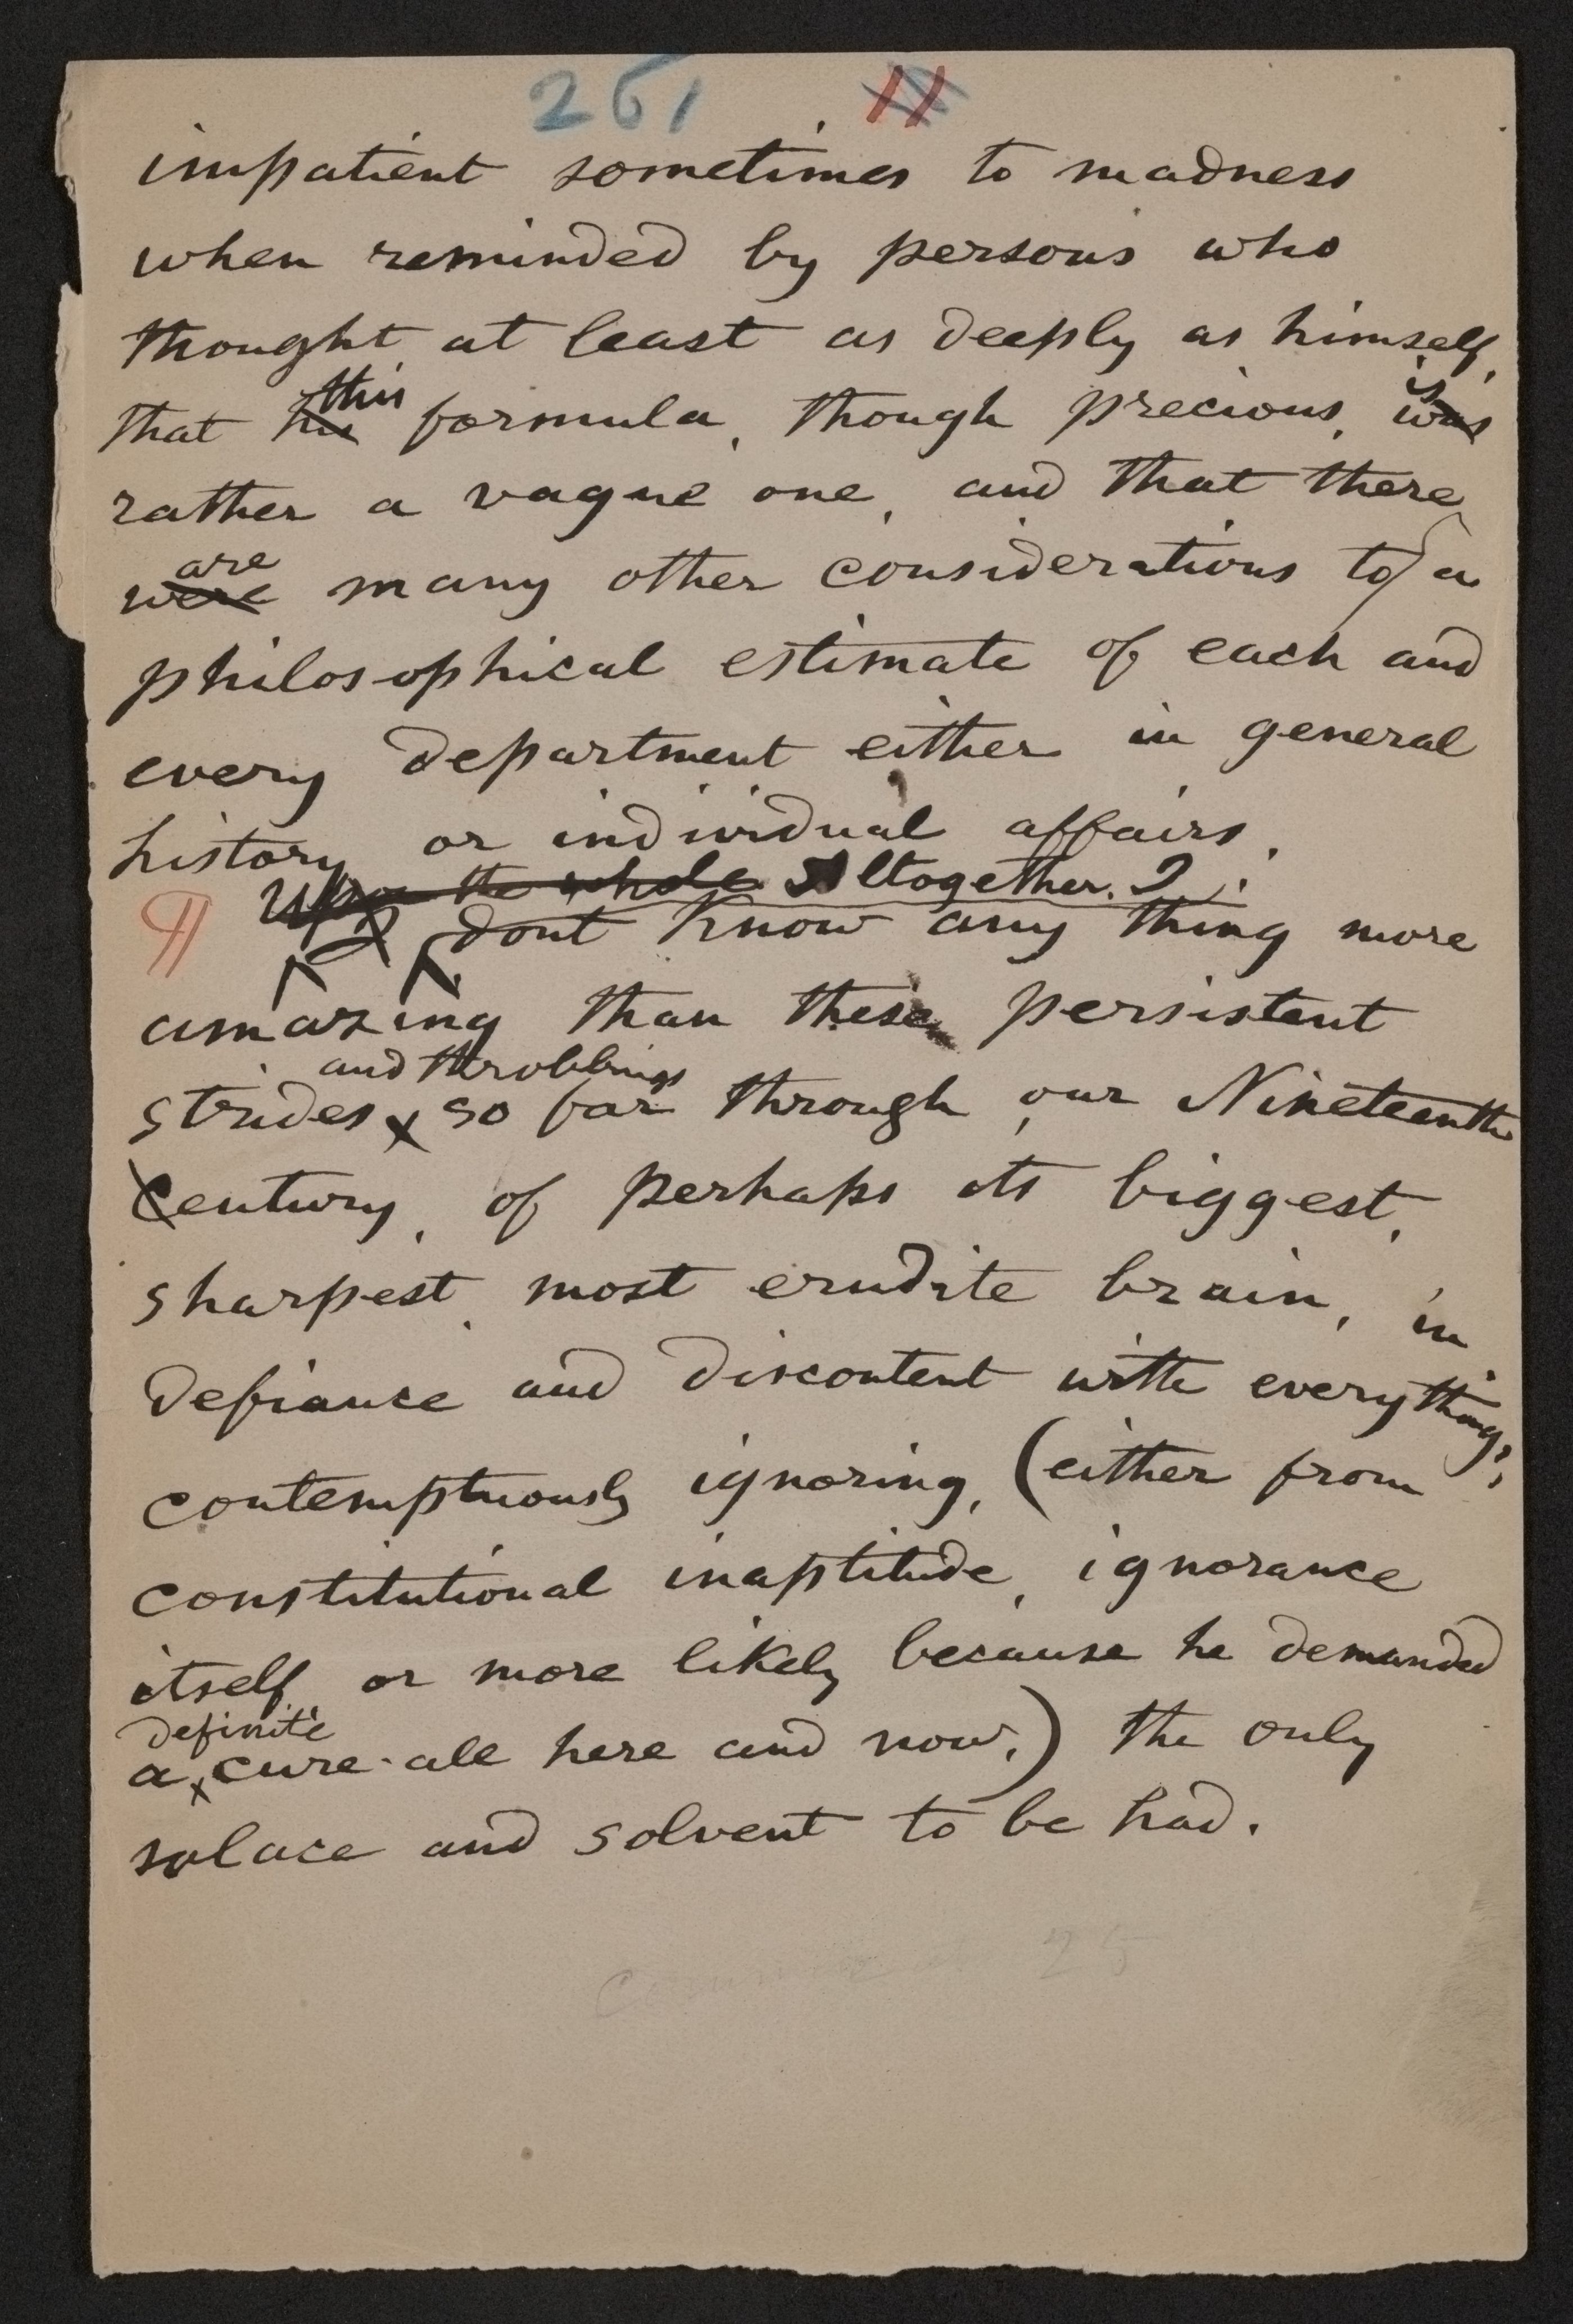 261 11
impatient sometimes to madness
when reminded by persons who
thought at least as deeply as himself,
this is
that his formula, though precious, was
rather a vague one, and that there
are
were many other considerations to a
philosophical estimate of each and
every department either in general
history or individual affairs.
Upon the whole Altogether, I
¶ I dont know any thing more
amazing than these persistent
and throbbings
strides so far through our Nineteenth
Century, of perhaps its biggest,
sharpest, most erudite brain, in
defiance and discontent with everything;
contemptuously ignoring, (either from
constitutional inaptitude, ignorance
itself, or more likely because he demanded
definite
a cure-all here and now,) the only
solace and solvent to be had.
25